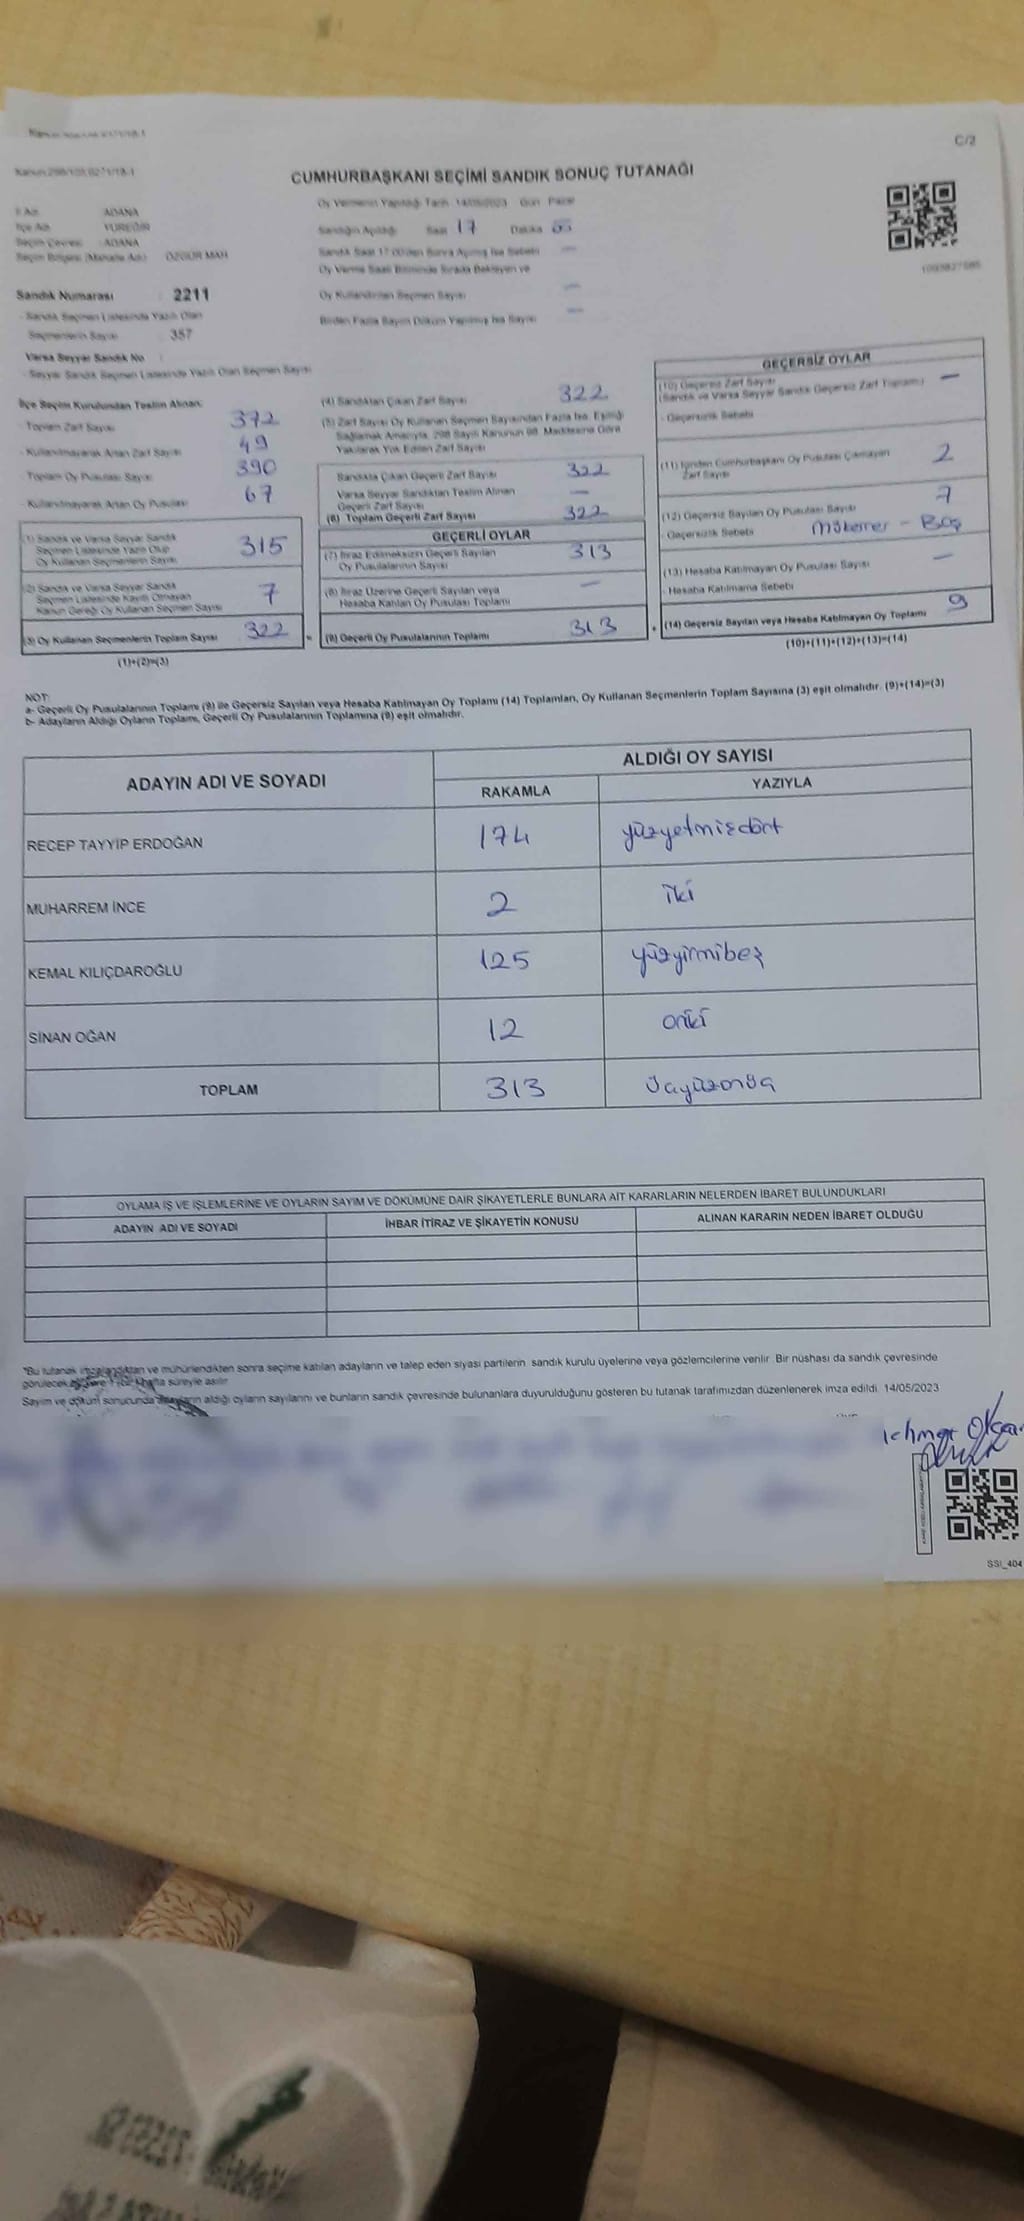 C/2
Kanun:298/105,0271/18-1
CUMHURBAŞKANI SEÇİMİ SANDIK SONUÇ TUTANAĞI
İl Adı : ADANA
İlçe Adı : YÜREĞİR
Seçim Çevresi : ADANA
Seçim Bölgesi (Mahalle Adı) : ÖZGÜR MAH
Sandık Numarası : 2211
- Sandık Seçmen Listesinde Yazılı Olan
Seçmenlerin Sayısı : 357
Varsa Seyyar Sandık No :
- Seyyar Sandık Seçmen Listesinde Yazılı Olan Seçmen Sayısı
Oy Vermenin Yapıldığı Tarih 14/05/2023 Gün Pazar
Sandığın Açıldığı Saat 17 Dakika 00
Sandık Saat 17:00'den Sonra Açılmış İse Sebebi —
Oy Verme Saati Bitiminde Sırada Bekleyen ve
Oy Kullandırılan Seçmen Sayısı —
Birden Fazla Sayım Döküm Yapılmış İse Sayısı —
İlçe Seçim Kurulundan Teslim Alınan:
- Toplam Zarf Sayısı 372
- Kullanılmayarak Artan Zarf Sayısı 49
- Toplam Oy Pusulası Sayısı 390
- Kullanılmayarak Artan Oy Pusulası 67
(1) Sandık ve Varsa Seyyar Sandık
Seçmen Listesinde Yazılı Olup
Oy Kullanan Seçmenlerin Sayısı 315
(2) Sandık ve Varsa Seyyar Sandık
Seçmen Listesinde Kayıtlı Olmayan
Kanun Gereği Oy Kullanan Seçmen Sayısı 7
(3) Oy Kullanan Seçmenlerin Toplam Sayısı 322
(1)+(2)=(3)
(4) Sandıktan Çıkan Zarf Sayısı 322
(5) Zarf Sayısı Oy Kullanan Seçmen Sayısından Fazla İse, Eşitliği
Sağlamak Amacıyla, 298 Sayılı Kanunun 98. Maddesine Göre
Yakılarak Yok Edilen Zarf Sayısı
Sandıkta Çıkan Geçerli Zarf Sayısı 322
Varsa Seyyar Sandıktan Teslim Alınan
Geçerli Zarf Sayısı —
(6) Toplam Geçerli Zarf Sayısı 322
GEÇERLİ OYLAR
(7) İtiraz Edilmeksizin Geçerli Sayılan
Oy Pusulalarının Sayısı 313
(8) İtiraz Üzerine Geçerli Sayılan veya
Hesaba Katılan Oy Pusulası Toplamı —
= (9) Geçerli Oy Pusulalarının Toplamı 313
GEÇERSİZ OYLAR
(10) Geçersiz Zarf Sayısı —
(Sandık ve Varsa Seyyar Sandık Geçersiz Zarf Toplamı)
- Geçersizlik Sebebi
(11) İçinden Cumhurbaşkanı Oy Pusulası Çıkmayan
Zarf Sayısı 2
(12) Geçersiz Sayılan Oy Pusulası Sayısı 7
- Geçersizlik Sebebi Mükerrer - Boş
(13) Hesaba Katılmayan Oy Pusulası Sayısı —
- Hesaba Katılmama Sebebi
+ (14) Geçersiz Sayılan veya Hesaba Katılmayan Oy Toplamı 9
(10)+(11)+(12)+(13)=(14)
NOT:
a- Geçerli Oy Pusulalarının Toplamı (9) ile Geçersiz Sayılan veya Hesaba Katılmayan Oy Toplamı (14) Toplamları, Oy Kullanan Seçmenlerin Toplam Sayısına (3) eşit olmalıdır. (9)+(14)=(3)
b- Adayların Aldığı Oyların Toplamı, Geçerli Oy Pusulalarının Toplamına (9) eşit olmalıdır.
ADAYIN ADI VE SOYADI ALDIĞI OY SAYISI
RAKAMLA YAZIYLA
RECEP TAYYİP ERDOĞAN 174 yüzyetmişdört
MUHARREM İNCE 2 iki
KEMAL KILIÇDAROĞLU 125 yüzyirmibeş
SİNAN OĞAN 12 oniki
TOPLAM 313
OYLAMA İŞ VE İŞLEMLERİNE VE OYLARIN SAYIM VE DÖKÜMÜNE DAİR ŞİKAYETLERLE BUNLARA AİT KARARLARIN NELERDEN İBARET BULUNDUKLARI
ADAYIN ADI VE SOYADI İHBAR İTİRAZ VE ŞİKAYETİN KONUSU ALINAN KARARIN NEDEN İBARET OLDUĞU
*Bu tutanak imzalandıktan ve mühürlendikten sonra seçime katılan adayların ve talep eden siyasi partilerin sandık kurulu üyelerine veya gözlemcilerine verilir. Bir nüshası da sandık çevresinde
görülecek bir yere 1 hafta süreyle asılır.
Sayım ve döküm sonucunda adayların aldığı oyların sayılarını ve bunların sandık çevresinde bulunanlara duyurulduğunu gösteren bu tutanak tarafımızdan düzenlenerek imza edildi. 14/05/2023
SSI_404